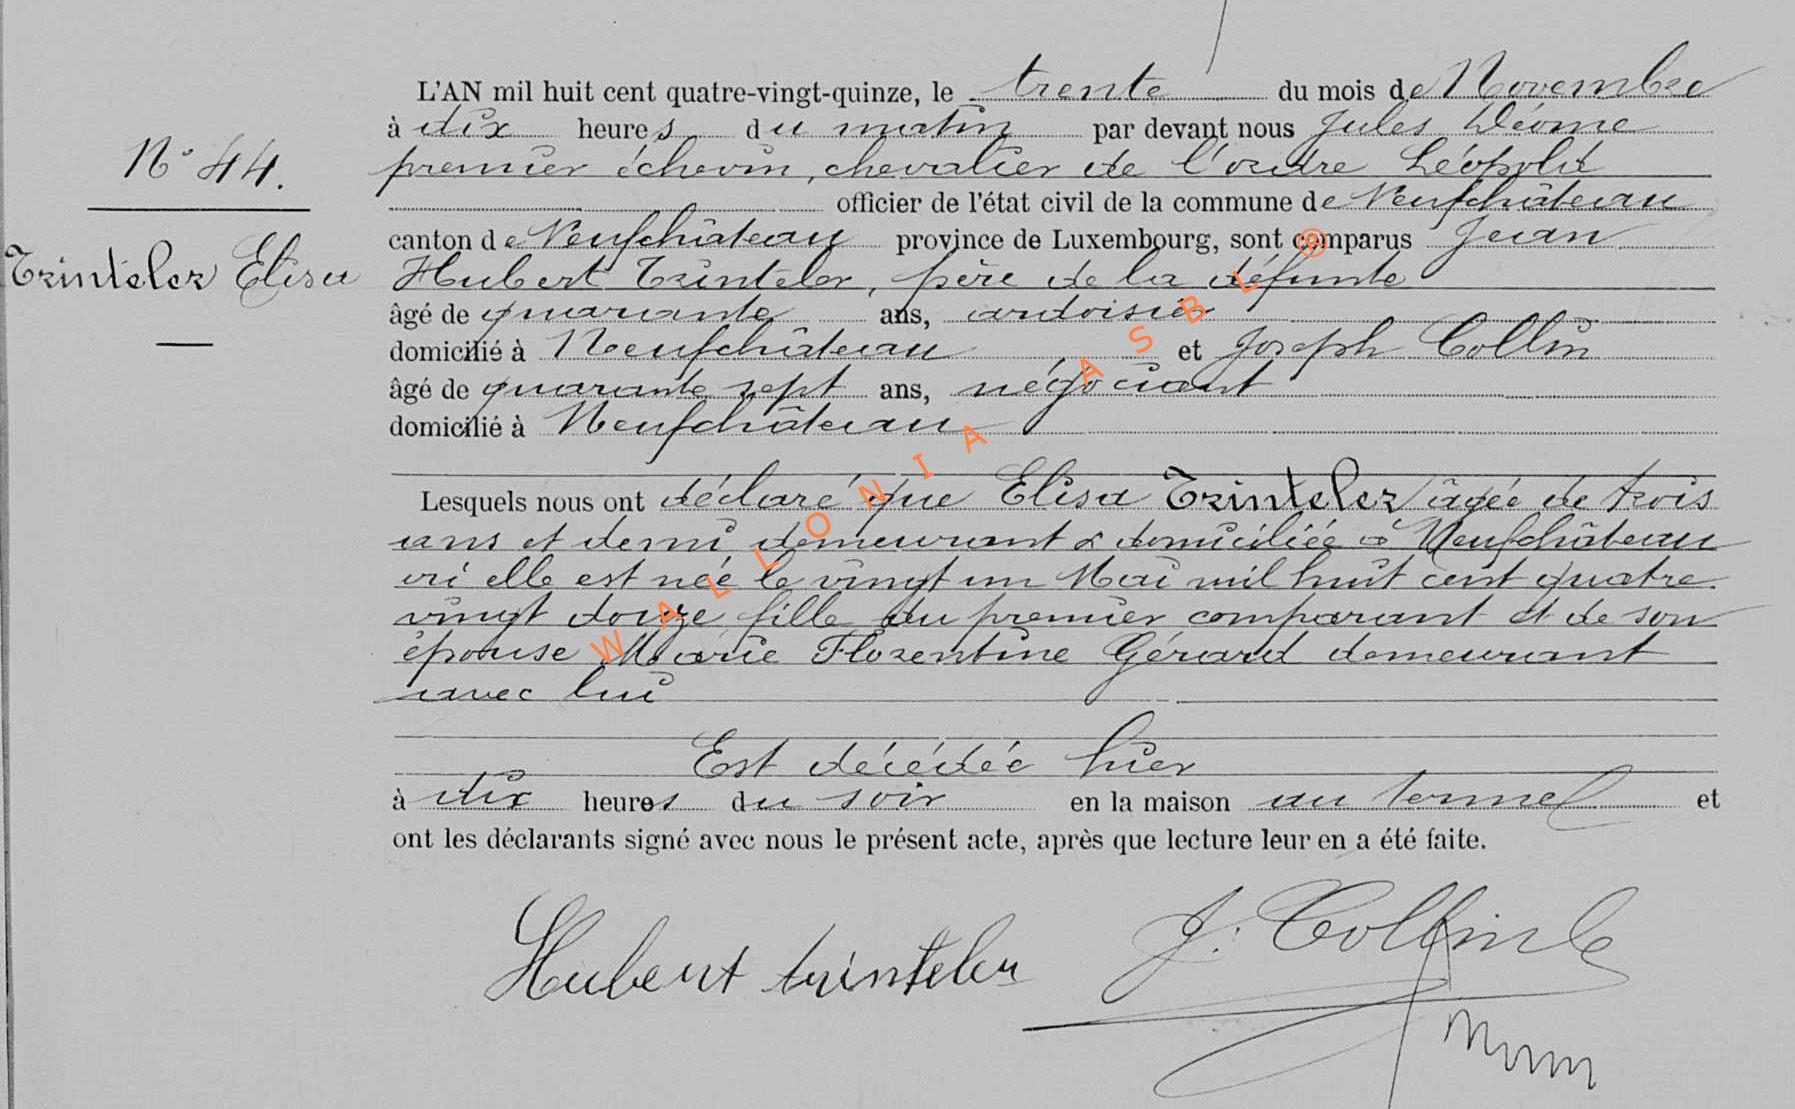 L'AN mil huit cent quatre-vingt-quinze, le trente du mois de Novembre
à dix heures du matin par devant nous Jules Déome
N° 44. premier échevin, chevalier de l'ordre Léopold
officier de l'état civil de la commune de Neufchâteau
canton de Neufchâteau province de Luxembourg, sont comparus Jean
Trinteler Elisa Hubert Trinteler, père de la défunte
âgé de quarante ans, ardoisier
domicilié à Neufchâteau et Joseph Collin
âgé de quarante sept ans, négociant
domicilié à Neufchâteau
Lesquels nous ont déclaré que Elisa Trinteler âgée de trois
ans et demi demeurant & domiciliée à Neufchâteau
où elle est née le vingt un Mai mil huit cent quatre
vingt douze fille du premier comparant et de son
épouse Marie Florentine Gérard demeurant
avec lui
Est décédée hier
à dix heures du soir en la maison au tunnel et
ont les déclarants signé avec nous le présent acte, après que lecture leur en a été faite.
Hubert trinteler J. Collin
WALLONIA ASBL ®